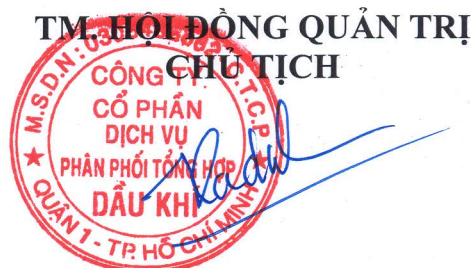 TM. HỘI ĐỒNG QUẢN TRỊ
CHỦ TỊCH
CÔNG TY
CỔ PHẦN
DỊCH VỤ
PHÂN PHỐI TỔNG HỢP
DẦU KHÍ
QUẬN 1 - TP. HỒ CHÍ MINH